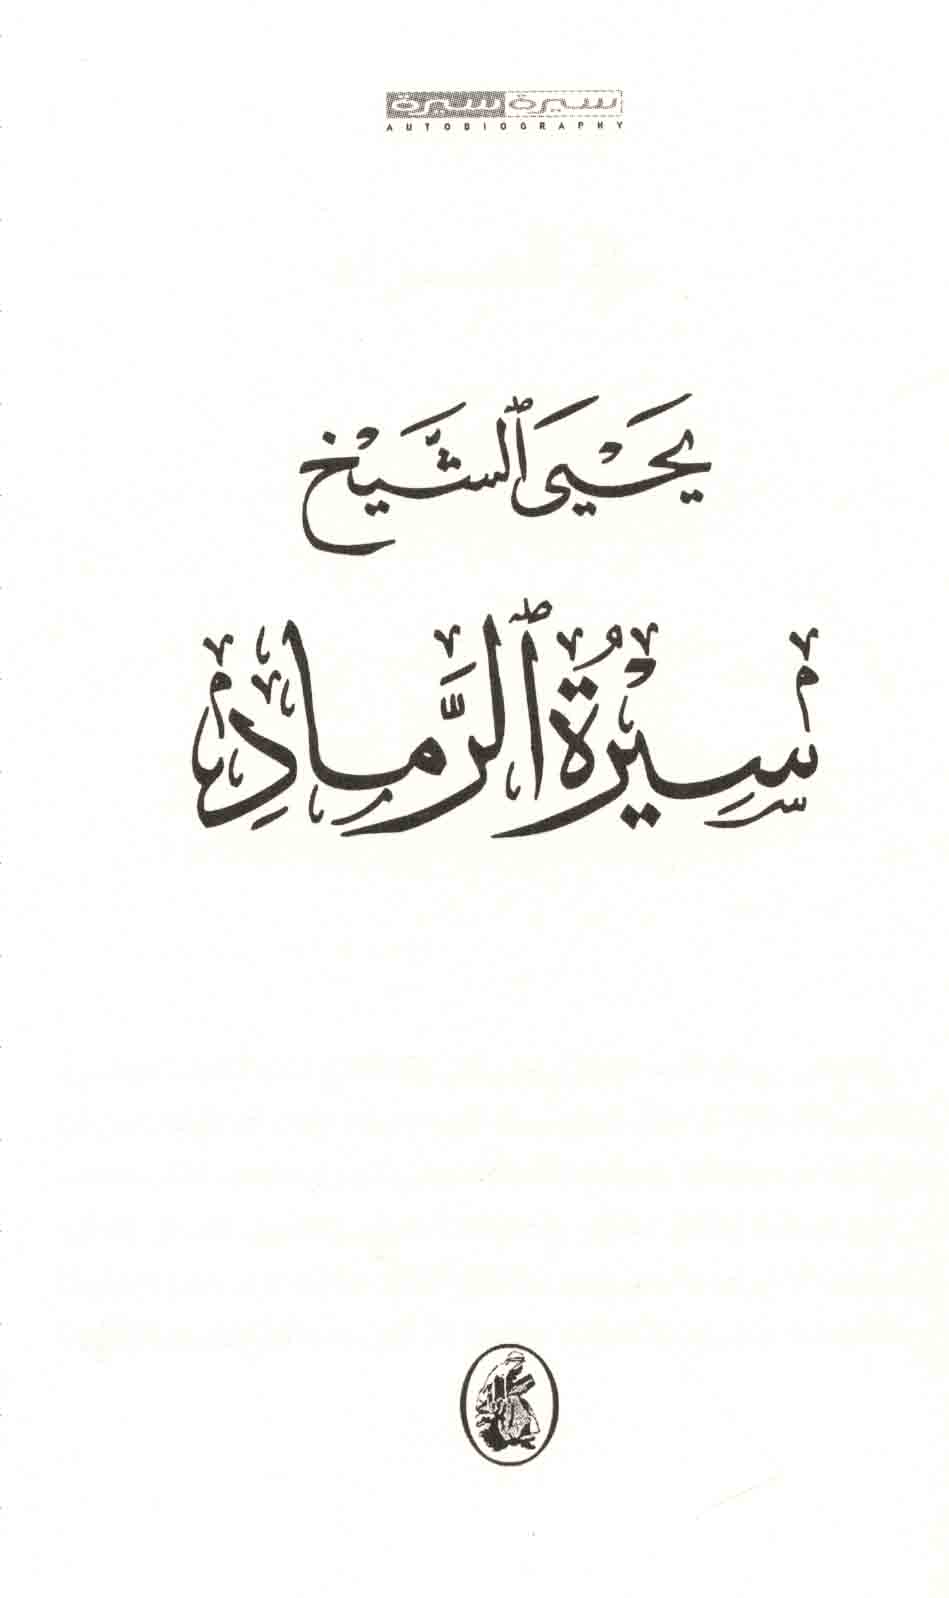 سيرة سيرة
AUTOBIOGRAPHY
يَحْيَى ٱلشَّيْخ
سِيْرَةُ ٱلرَّمادِ